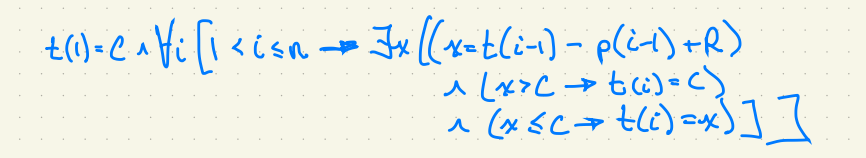 t(1)=C ∧ ∀i [1 < i ≤ n → ∃x [(x=t(i-1) - p(i-1) +R)
∧ (x>C → t(i)=C)
∧ (x≤C → t(i)=x)]]